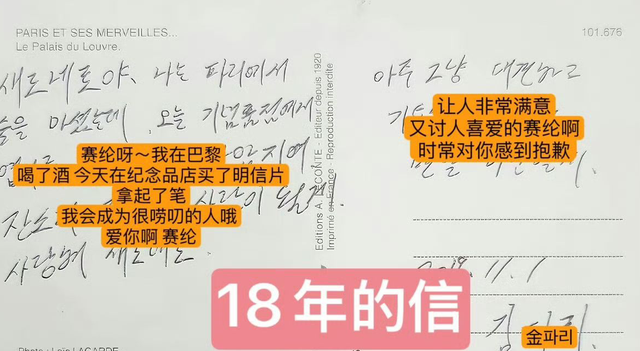 PARIS ET SES MERVEILLES...
Le Palais du Louvre.
101.676
새로네로야, 나는 파리에서
술을 마셨는데 오늘 기념품점에서
사람이 될게
사랑해 새로네로
赛纶呀～我在巴黎
喝了酒 今天在纪念品店买了明信片
拿起了笔
我会成为很唠叨的人哦
爱你啊 赛纶
Editeur depuis 1920
Imprimé en France - Reproduction interdite
아주 그냥 대견하고
让人非常满意
又讨人喜爱的赛纶啊
时常对你感到抱歉
2018.11.1
18年的信
金파리